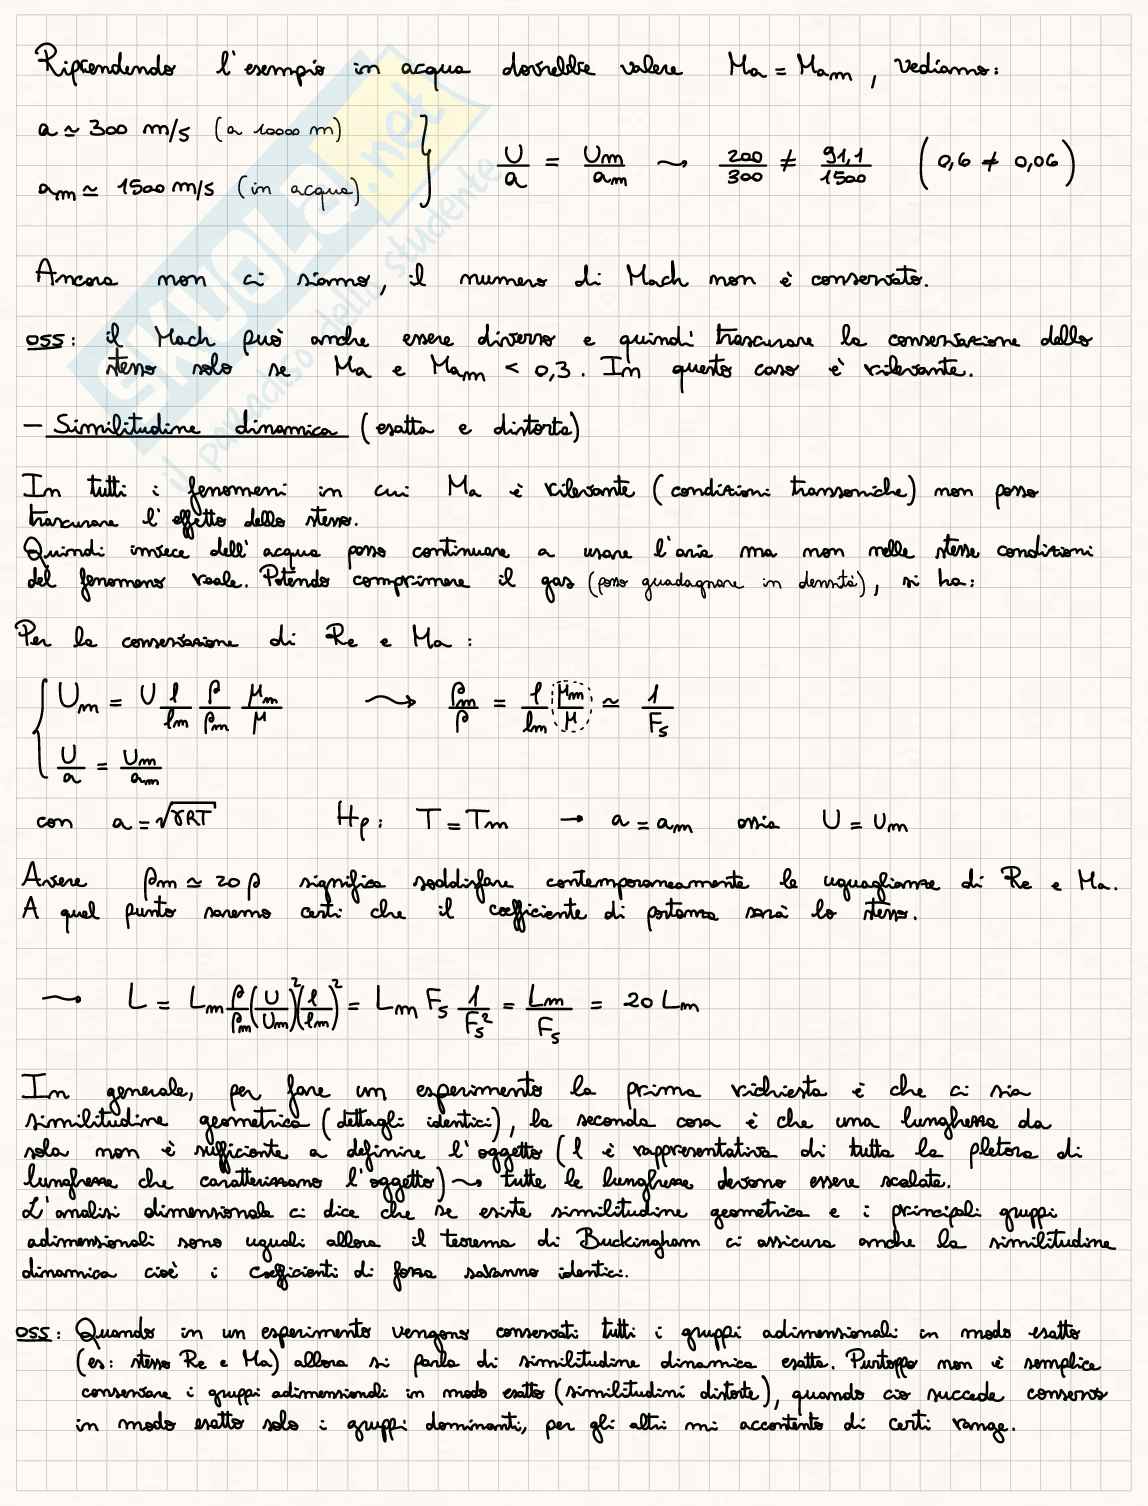 Riprendendo l'esempio in acqua dovrebbe valere Ma = Mam , vediamo:
a ≃ 300 m/s (a 10000 m)
am ≃ 1500 m/s (in acqua)
U/a = Um/am ⇝ 200/300 ≠ 91,1/1500 (0,6 ≠ 0,06)
Ancora non ci siamo, il numero di Mach non è conservato.
OSS: il Mach può anche essere diverso e quindi trascurare la conservazione dello
stesso solo se Ma e Mam < 0,3. In questo caso è rilevante.
- Similitudine dinamica (esatta e distorta)
In tutti i fenomeni in cui Ma è rilevante (condizioni transoniche) non posso
trascurare l'effetto dello stesso.
Quindi invece dell'acqua posso continuare a usare l'aria ma non nelle stesse condizioni
del fenomeno reale. Potendo comprimere il gas (posso guadagnare in densità), si ha:
Per la conservazione di Re e Ma :
Um = U l/lm ρ/ρm μm/μ ⇝ ρm/ρ = l/lm μm/μ ≃ 1/Fs
U/a = Um/am
con a = √γRT Hp: T = Tm → a = am ossia U = Um
Avere ρm ≃ 20 ρ significa soddisfare contemporaneamente le uguaglianze di Re e Ma.
A quel punto saremo certi che il coefficiente di portanza sarà lo stesso.
⇝ L = Lm ρ/ρm (U/Um)² (l/lm)² = Lm Fs 1/Fs² = Lm/Fs = 20 Lm
In generale, per fare un esperimento la prima richiesta è che ci sia
similitudine geometrica (dettagli identici), la seconda cosa è che una lunghezza da
sola non è sufficiente a definire l'oggetto (l è rappresentativa di tutta la pletora di
lunghezze che caratterizzano l'oggetto) ⇝ tutte le lunghezze devono essere scalate.
L'analisi dimensionale ci dice che se esiste similitudine geometrica e i principali gruppi
adimensionali sono uguali allora il teorema di Buckingham ci assicura anche la similitudine
dinamica cioè i coefficienti di forza saranno identici.
OSS: Quando in un esperimento vengono conservati tutti i gruppi adimensionali in modo esatto
(es: stesso Re e Ma) allora si parla di similitudine dinamica esatta. Purtroppo non è semplice
conservare i gruppi adimensionali in modo esatto (similitudini distorte), quando ciò succede conservo
in modo esatto solo i gruppi dominanti, per gli altri mi accontento di certi range.
SKUOLA.net
il paradiso dello studente